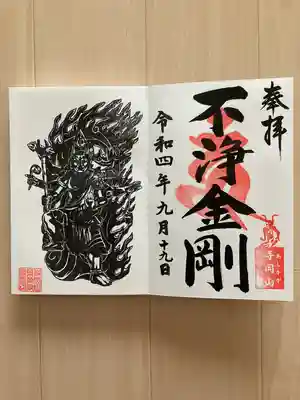 奉拝
不浄金剛
令和四年九月十九日